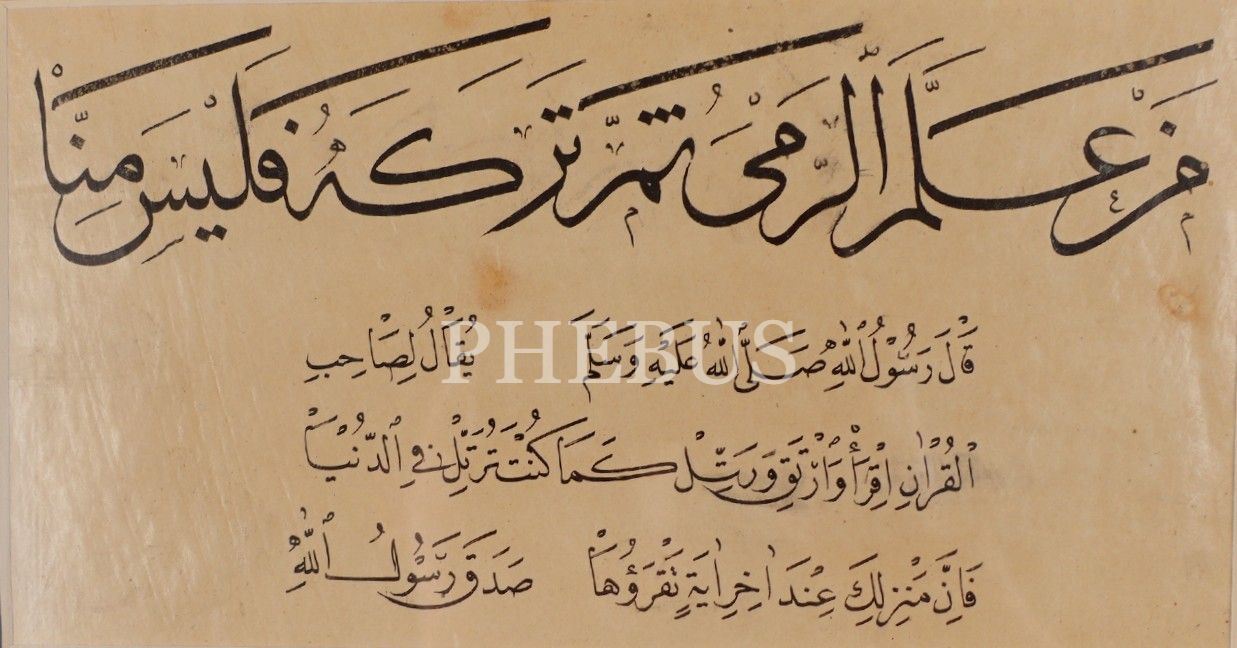 مَنْ عَلِمَ الرَّمْيَ ثُمَّ تَرَكَهُ فَلَيْسَ مِنَّا
قَالَ رَسُولُ اللّٰهِ صَلَّى اللّٰهُ عَلَيْهِ وَسَلَّمَ يُقَالُ لِصَاحِبِ
الْقُرْاٰنِ اِقْرَأْ وَارْتَقِ وَرَتِّلْ كَمَا كُنْتَ تُرَتِّلُ فِي الدُّنْيَا
فَاِنَّ مَنْزِلَكَ عِنْدَ اٰخِرِ اٰيَةٍ تَقْرَؤُهَا صَدَقَ رَسُولُ اللّٰهِ
PHEBUS